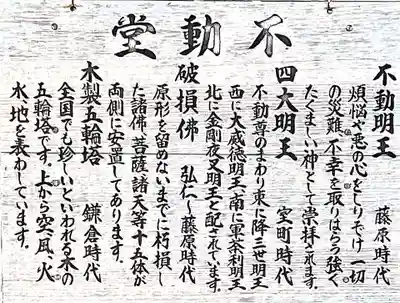 不動堂
不動明王　藤原時代
煩悩や悪の心をしりぞけ一切
の災難、不幸を取りはらう強く
たくましい神として崇拝されます。
四大明王　室町時代
不動尊のまわり東に降三世明王
西に大威徳明王、南に軍荼利明王
北に金剛夜叉明王と配されています。
破損佛　弘仁〜藤原時代
原形を留めないまでに朽損し
た諸佛、菩薩、諸天等十五体が
両側に安置してあります。
木製五輪塔　鎌倉時代
全国でも珍しいといわれる木の
五輪塔です。上から空、風、火、
水、地を表わしています。